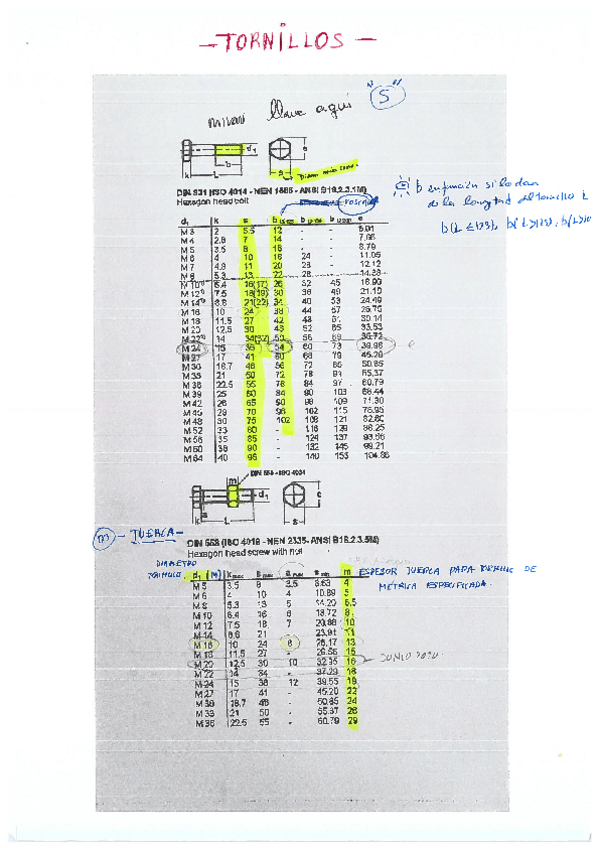 - TORNILLOS -
llave aquí "S"
DIN 931 (ISO 4014 - NEN 1566 - ANSI B18.2.3.1M)
Hexagon head bolt
b en función si lo dan
de la longitud del tornillo L
d₁ k s b e
M 3 2 5.5 12 - -
M 4 2.8 7 14 - -
M 5 3.5 8 16 - - 8.79
M 6 4 10 18 24 - 11.05
M 8 5.3 13 22 28 -
M 10 6.4 16(17) 26 32 45 18.90
M 12 7.5 18(19) 30 36 49 21.10
M 14 8.8 21(22) 34 40 53 24.49
M 16 10 24 38 44 57 26.75
M 18 11.5 27 42 48
M 20 12.5 30 46 52 65 33.53
M 22 14 34(32) 50 56 69
M 24 15 36 54 60 73 39.98
M 27 17 41 60 66 79 45.20
M 30 18.7 46 66 72 85 50.85
M 33 21 50 72 78 91 55.37
M 36 22.5 55 78 84 97 60.79
M 39 25 60 84 90 103 66.44
M 42 26 65 90 96 109 71.30
M 45 28 70 96 102 115 76.95
M 48 30 75 102 108 121 82.60
M 52 33 80 - 116 129 88.25
M 56 35 85 - 124 137 93.56
M 60 38 90 - 132 145 99.21
M 64 40 95 - 140 153 104.86
DIN 558 - ISO 4034
m
d₁
k L
s
m - TUERCA -
DIN 558 (ISO 4018 - NEN 2335 - ANSI B18.2.3.5M)
Hexagon head screw with nut
DIAMETRO
TORNILLO
d₁ (M) k max s max a max e min m ESPESOR TUERCA PARA TORNILLO DE
METRICA ESPECIFICADA.
M 5 3.5 8 2.5 8.63 4
M 6 4 10 4 10.89 5
M 8 5.3 13 5 14.20 6.5
M 10 6.4 16 6 18.72 8
M 12 7.5 18 7 20.88 10
M 14 8.8 21 23.91 11
M 16 10 24 8 26.17 13
M 18 11.5 27 - 15
M 20 12.5 30 10 32.95 16 JUNIO
M 22 14 34 - 37.29 18
M 24 15 36 12 39.55 19
M 27 17 41 - 45.20 22
M 30 18.7 46 - 50.85 24
M 33 21 50 - 55.37 26
M 36 22.5 55 - 60.79 29